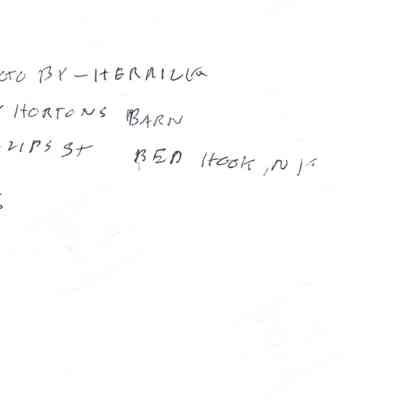 OTO BY - HERRICK
HORTONS BARN
LIPS St RED HOOK, NY